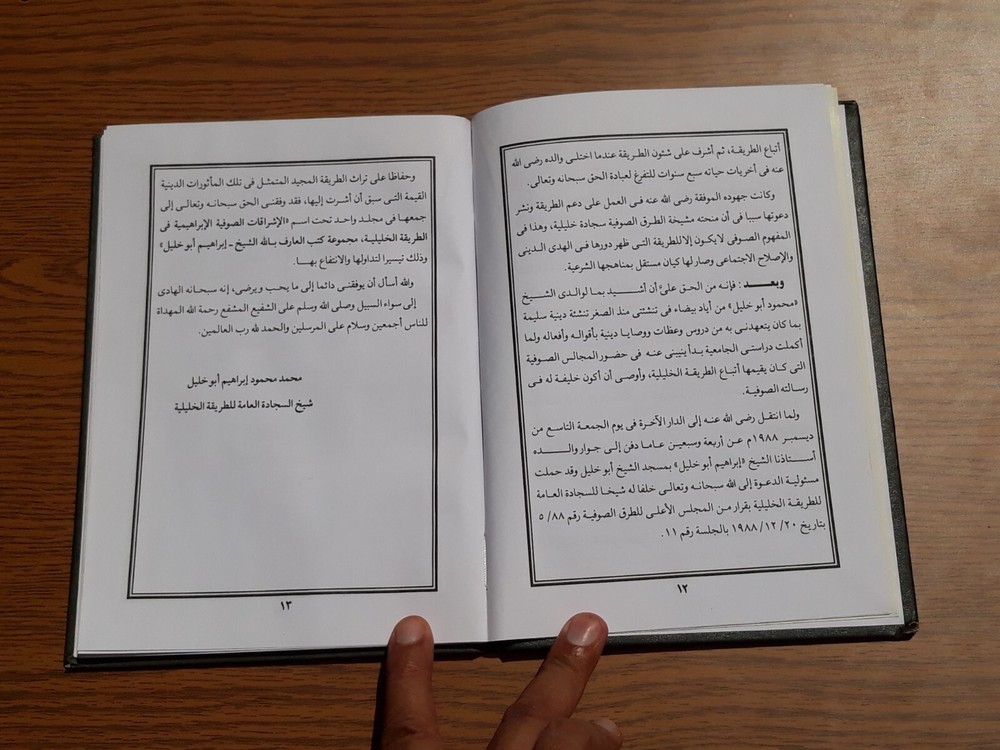 أتباع الطريقة، ثم أشرف على شئون الطريقة عندما اختلى والده رضى الله
عنه فى أخريات حياته سبع سنوات للتفرغ لعبادة الحق سبحانه وتعالى.
وكانت جهوده الموفقة رضى الله عنه فى العمل على دعم الطريقة ونشر
دعوتها سببا فى أن منحته مشيخة الطرق الصوفية سجادة خليلية، وهذا فى
المفهوم الصوفى لا يكون إلا للطريقة التى ظهر دورها فى الهدى الدينى
والإصلاح الاجتماعى وصار لها كيان مستقل بمناهجها الشرعية.
وبعد : فإنه من الحق علىَّ أن أشيد بما لوالدى الشيخ
«محمود أبو خليل» من أياد بيضاء فى تنشئتى منذ الصغر تنشئة دينية سليمة
بما كان يتعهدنى به من دروس وعظات ووصايا دينية بأقواله وأفعاله ولما
أكملت دراستى الجامعية بدأ ينيبنى عنه فى حضور المجالس الصوفية
التى كان يقيمها أتباع الطريقة الخليلية، وأوصى أن أكون خليفة له فى
رسالته الصوفية.
ولما انتقل رضى الله عنه إلى الدار الآخرة فى يوم الجمعة التاسع من
ديسمبر ١٩٨٨م عن أربعة وسبعين عاما دفن إلى جوار والده
أستاذنا الشيخ «إبراهيم أبو خليل» بمسجد الشيخ أبو خليل وقد حملت
مسئولية الدعوة إلى الله سبحانه وتعالى خلفا له شيخا للسجادة العامة
للطريقة الخليلية بقرار من المجلس الأعلى للطرق الصوفية رقم ٨٨/ ٥
بتاريخ ٢٠/ ١٢/ ١٩٨٨ بالجلسة رقم ١١.
١٢
وحفاظا على تراث الطريقة المجيد المتمثل فى تلك المأثورات الدينية
القيمة التى سبق أن أشرت إليها، فقد وفقنى الحق سبحانه وتعالى إلى
جمعها فى مجلد واحد تحت اسم «الإشراقات الصوفية الإبراهيمية فى
الطريقة الخليلية، مجموعة كتب العارف بالله الشيخ ـ إبراهيم أبو خليل»
وذلك تيسيرا لتداولها والانتفاع بها.
والله أسأل أن يوفقنى دائما إلى ما يحب ويرضى، إنه سبحانه الهادى
إلى سواء السبيل وصلى الله وسلم على الشفيع المشفع رحمة الله المهداة
للناس أجمعين وسلام على المرسلين والحمد لله رب العالمين.
محمد محمود إبراهيم أبو خليل
شيخ السجادة العامة للطريقة الخليلية
١٣